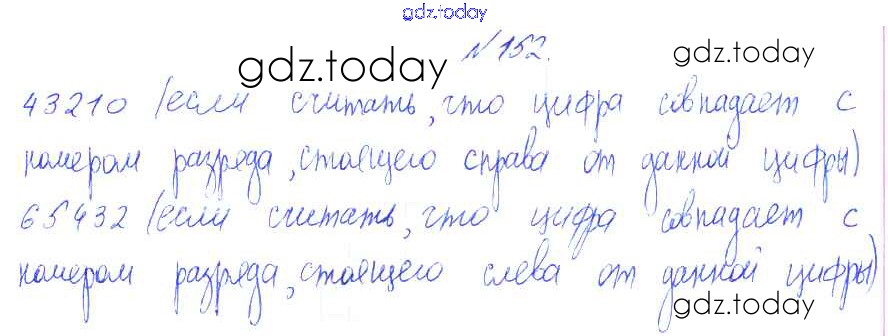 gdz.today
№ 152.
gdz.today
gdz.today
43210 (если считать, что цифра совпадает с
номером разряда, стоящего справа от данной цифры)
65432 (если считать, что цифра совпадает с
номером разряда, стоящего слева от данной цифры)
gdz.today